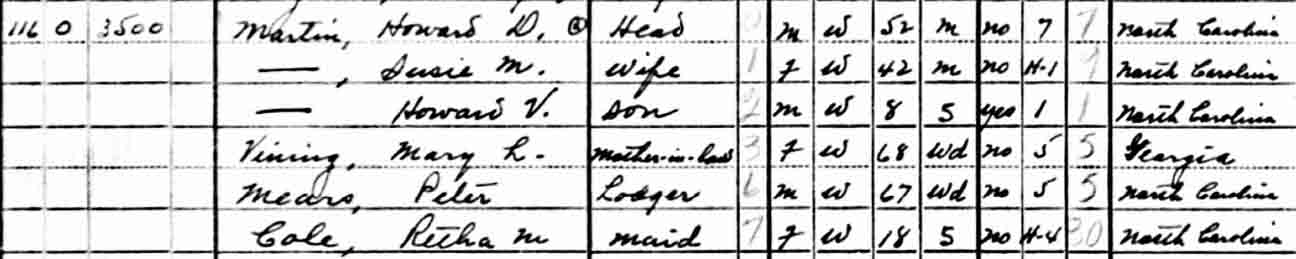 116 0 3500 Martin, Howard D. ⓧ Head 0 M W 52 M no 7 7 North Carolina
—, Susie M. Wife 1 F W 42 M no H-1 9 North Carolina
— Howard V. Son 2 M W 8 S yes 1 1 North Carolina
Vining, Mary L. Mother-in-law 3 F W 68 Wd no 5 5 Georgia
Mears, Peter Lodger 6 M W 67 Wd no 5 5 North Carolina
Cole, Retha M Maid 7 F W 18 S no H-4 30 North Carolina